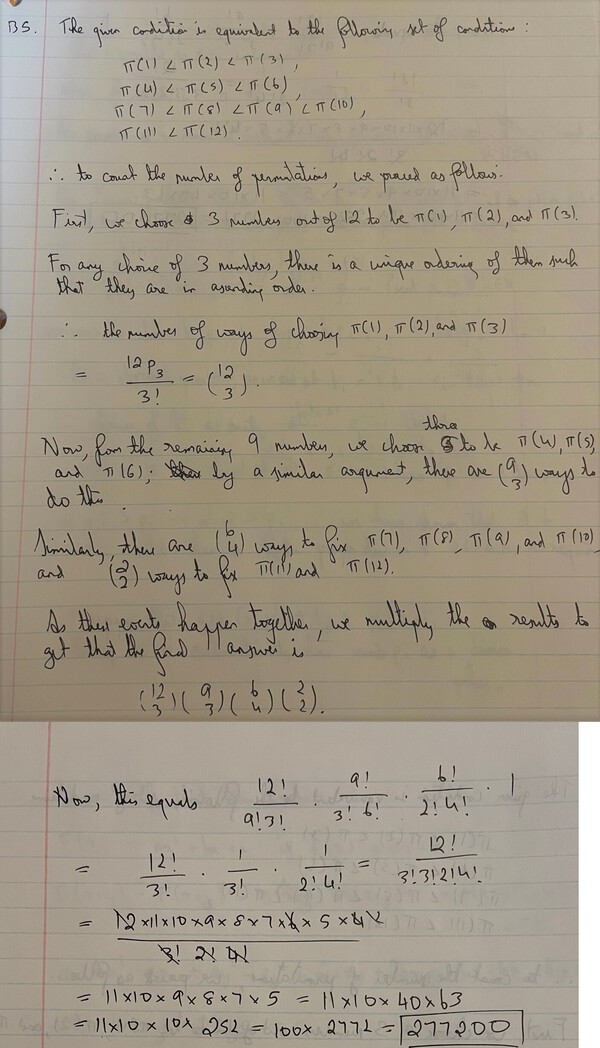 B5. The given condition is equivalent to the following set of conditions:
π(1) < π(2) < π(3),
π(4) < π(5) < π(6),
π(7) < π(8) < π(9) < π(10),
π(11) < π(12).
∴ to count the number of permutations, we proceed as follows:
First, we choose 3 numbers out of 12 to be π(1), π(2), and π(3).
For any choice of 3 numbers, there is a unique ordering of them such
that they are in ascending order.
∴ the number of ways of choosing π(1), π(2), and π(3)
= 12P₃/3! = (12 3).
Now, from the remaining 9 numbers, we choose three to be π(4), π(5),
and π(6); by a similar argument, there are (9 3) ways to
do this.
Similarly, there are (6 4) ways to fix π(7), π(8), π(9), and π(10)
and (2 2) ways to fix π(11) and π(12).
As these events happen together, we multiply the results to
get that the final answer is
(12 3)(9 3)(6 4)(2 2).
Now, this equals 12!/9!3! · 9!/3!6! · 6!/2!4! · 1
= 12!/3! · 1/3! · 1/2!4! = 12!/3!3!2!4!
= 12×11×10×9×8×7×6×5×4!/3! 2! 4!
= 11×10×9×8×7×5 = 11×10×40×63
= 11×10×10×252 = 100×2772 = 277200